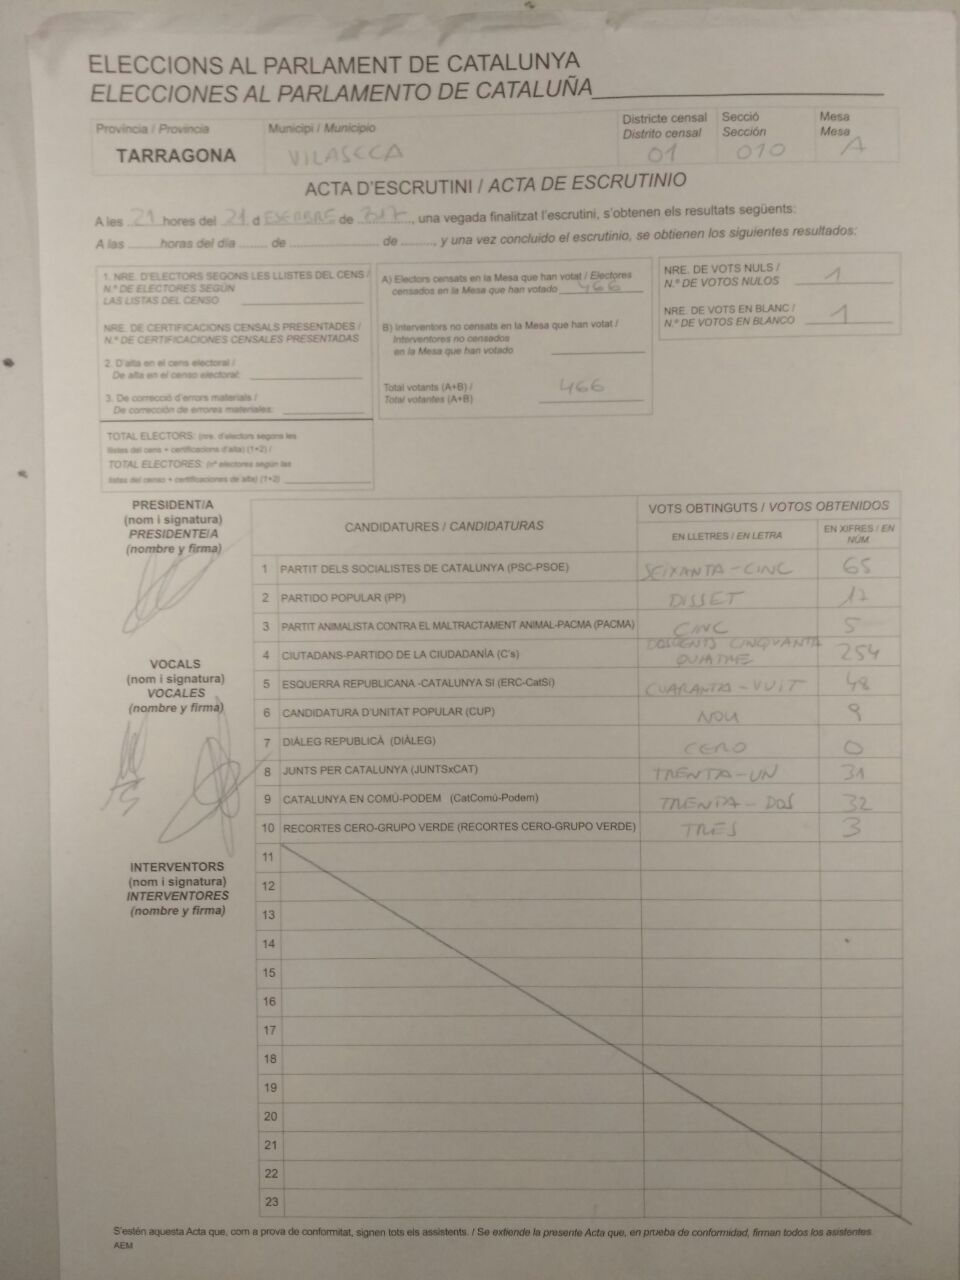 ELECCIONS AL PARLAMENT DE CATALUNYA
ELECCIONES AL PARLAMENTO DE CATALUÑA
Província / Provincia
TARRAGONA
Municipi / Municipio
VILASECA
Districte censal
Distrito censal
01
Secció
Sección
010
Mesa
Mesa
A
ACTA D'ESCRUTINI / ACTA DE ESCRUTINIO
A les 21 hores del 21 d ESEMBRE de 2017, una vegada finalitzat l'escrutini, s'obtenen els resultats següents:
A las ...... horas del día ...... de ...... de ......, y una vez concluido el escrutinio, se obtienen los siguientes resultados:
1. NRE. D'ELECTORS SEGONS LES LLISTES DEL CENS /
N.º DE ELECTORES SEGÚN
LAS LISTAS DEL CENSO
NRE. DE CERTIFICACIONS CENSALS PRESENTADES /
N.º DE CERTIFICACIONES CENSALES PRESENTADAS
2. D'alta en el cens electoral /
De alta en el censo electoral:
3. De correcció d'errors materials /
De corrección de errores materiales:
TOTAL ELECTORS: (nre. d'electors segons les
llistes del cens + certificacions d'alta) (1+2) /
TOTAL ELECTORES: (nº electores según las
listas del censo + certificaciones de alta) (1+2)
A) Electors censats en la Mesa que han votat / Electores
censados en la Mesa que han votado 466
B) Interventors no censats en la Mesa que han votat /
Interventores no censados
en la Mesa que han votado
Total votants (A+B) /
Total votantes (A+B)
466
NRE. DE VOTS NULS /
N.º DE VOTOS NULOS
1
NRE. DE VOTS EN BLANC /
N.º DE VOTOS EN BLANCO
1
PRESIDENT/A
(nom i signatura)
PRESIDENTE/A
(nombre y firma)
VOCALS
(nom i signatura)
VOCALES
(nombre y firma)
INTERVENTORS
(nom i signatura)
INTERVENTORES
(nombre y firma)
CANDIDATURES / CANDIDATURAS
VOTS OBTINGUTS / VOTOS OBTENIDOS
EN LLETRES / EN LETRA
EN XIFRES / EN
NÚM.
1 PARTIT DELS SOCIALISTES DE CATALUNYA (PSC-PSOE) SEIXANTA-CINC 65
2 PARTIDO POPULAR (PP) DISSET 17
3 PARTIT ANIMALISTA CONTRA EL MALTRACTAMENT ANIMAL-PACMA (PACMA) CINC 5
4 CIUTADANS-PARTIDO DE LA CIUDADANÍA (C's) DOSCENTS CINQUANTA QUATRE 254
5 ESQUERRA REPUBLICANA -CATALUNYA SÍ (ERC-CatSí) CUARANTA-VUIT 48
6 CANDIDATURA D'UNITAT POPULAR (CUP) NOU 9
7 DIÀLEG REPUBLICÀ (DIÀLEG) CERO 0
8 JUNTS PER CATALUNYA (JUNTSxCAT) TRENTA-UN 31
9 CATALUNYA EN COMÚ-PODEM (CatComú-Podem) TRENTA-DOS 32
10 RECORTES CERO-GRUPO VERDE (RECORTES CERO-GRUPO VERDE) TRES 3
11
12
13
14
15
16
17
18
19
20
21
22
23
S'estén aquesta Acta que, com a prova de conformitat, signen tots els assistents. / Se extiende la presente Acta que, en prueba de conformidad, firman todos los asistentes.
AEM